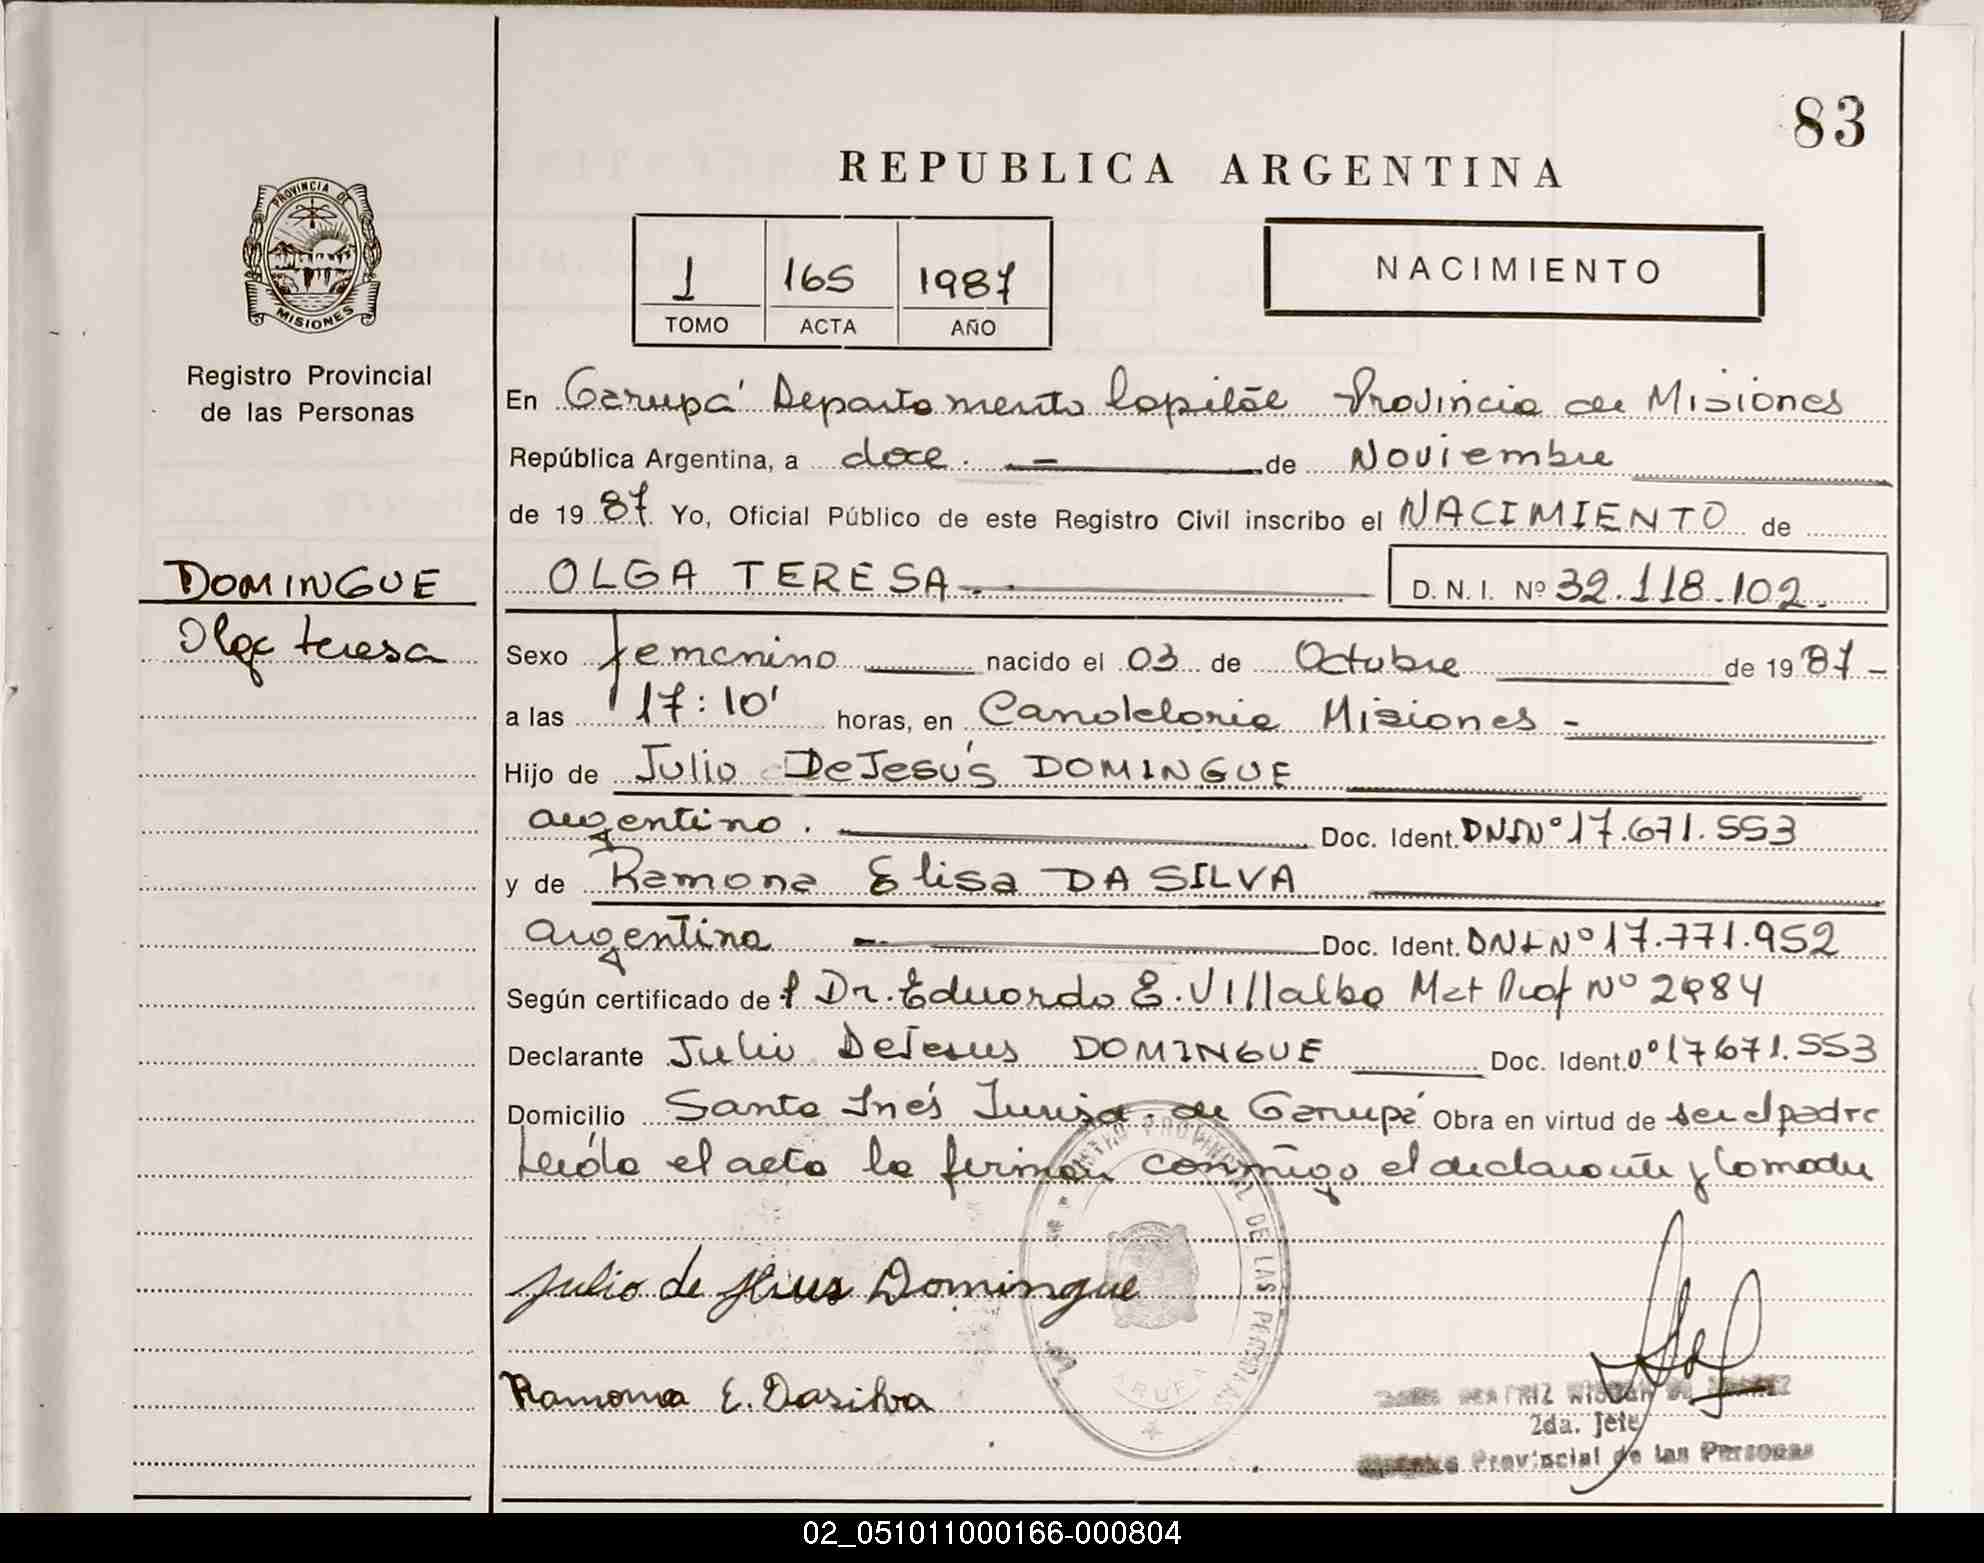 83
REPUBLICA ARGENTINA
PROVINCIA DE
MISIONES
Registro Provincial
de las Personas
1 165 1987
TOMO ACTA AÑO
NACIMIENTO
En Garupá Departamento Capital Provincia de Misiones
República Argentina, a doce. de Noviembre
de 1987. Yo, Oficial Público de este Registro Civil inscribo el NACIMIENTO de
DOMINGUE
Olga teresa
OLGA TERESA D. N. I. Nº 32.118.102.
Sexo femenino nacido el 03 de Octubre de 1987-
a las 17:10' horas, en Candelaria Misiones -
Hijo de Julio DeJesús DOMINGUE
argentino. Doc. Ident. DNI Nº 17.671.553
y de Ramona Elisa DA SILVA
argentina Doc. Ident. DNI Nº 17.771.952
Según certificado del Dr. Eduardo E. Villalba Mat Prof Nº 2984
Declarante Julio DeJesus DOMINGUE Doc. Ident. 17671.553
Domicilio Santa Inés Jurisd. de Garupá Obra en virtud de ser el padre
Leída el acta la firman conmigo el declarante y la madre
REGISTRO PROVINCIAL DE LAS PERSONAS
GARUPA
Julio de Jesus Domingue
Ramona E. Dasilva
BEATRIZ
2da. Jefe
Provincial de las Personas
02_051011000166-000804